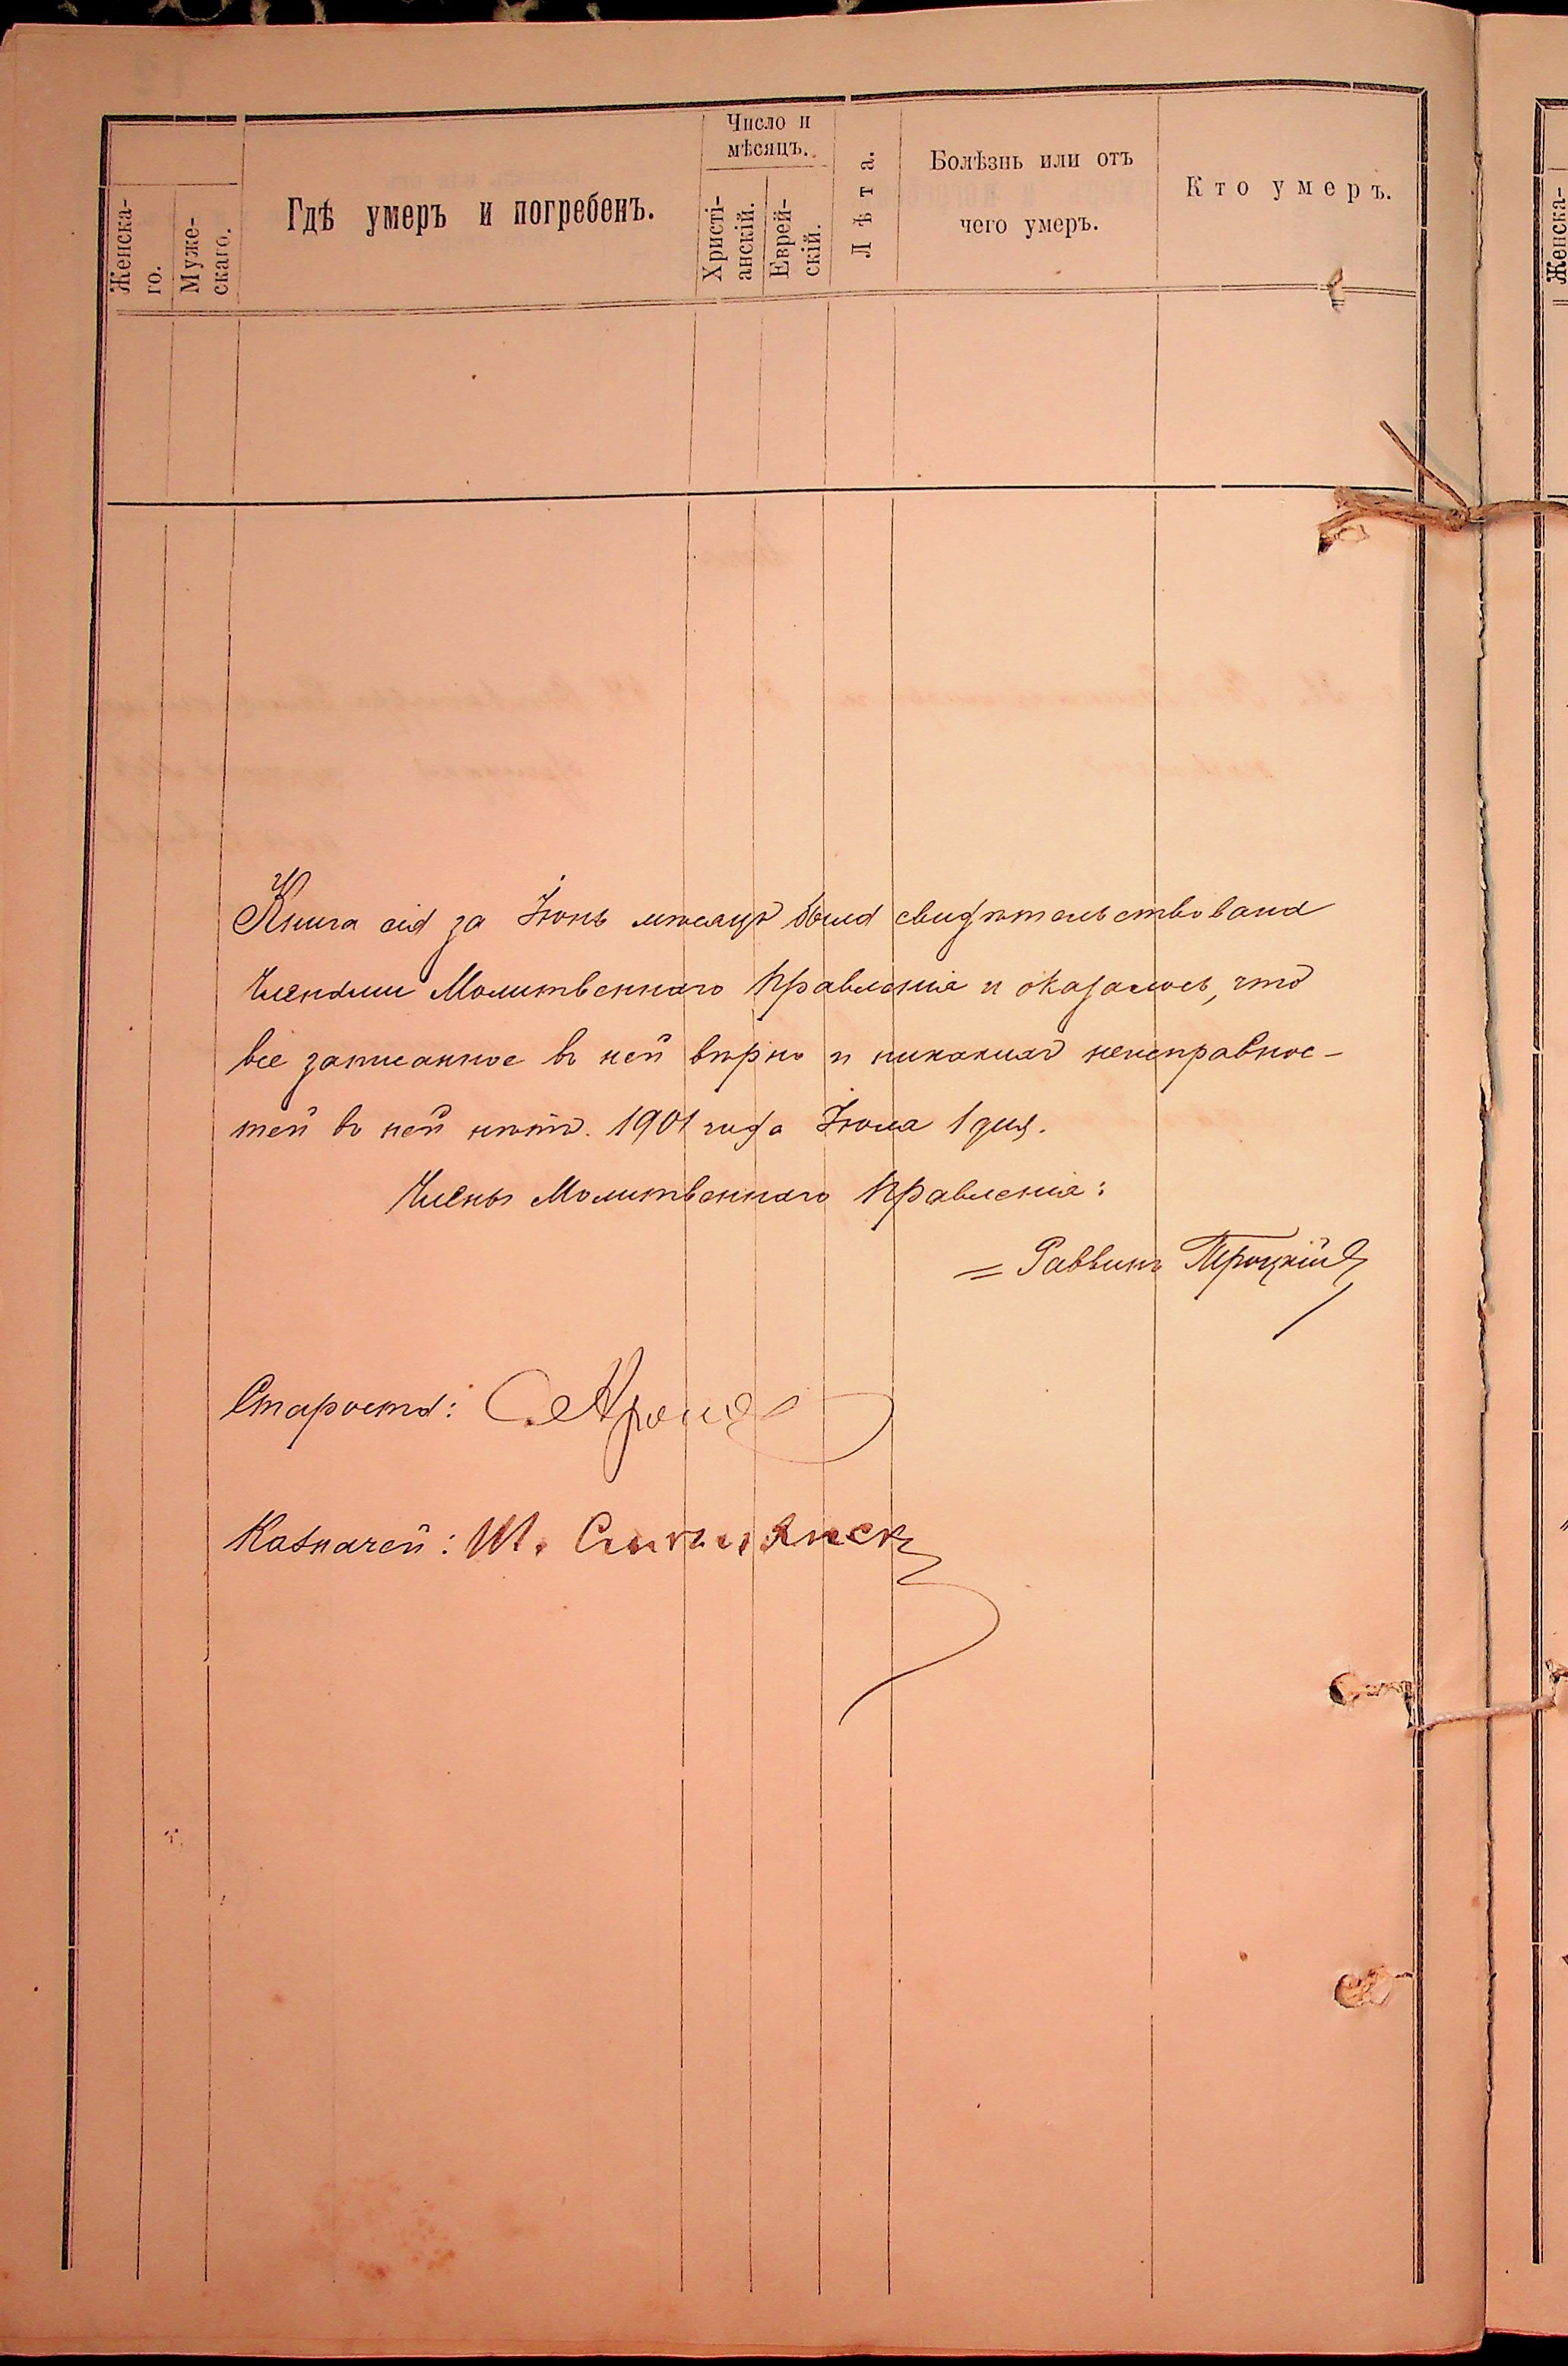 Женска-
го.
Муже-
скаго.
Гдѣ умеръ и погребенъ.
Число и
мѣсяцъ.
Христі-
анскій.
Еврей-
скій.
Лѣта.
Болѣзнь или отъ
чего умеръ.
Кто умеръ.
Книга сія за Іюнь мѣсяцъ была свидѣтельствована
Членами Молитвеннаго Правленія и оказалось, что
все записанное въ ней вѣрно и никакихъ неисправнос-
тей въ ней нѣтъ. 1901 года Іюля 1 дня.
Члены Молитвеннаго Правленія:
= Раввинъ Троцкій
Староста:
Казначей: Ш.
Женска-